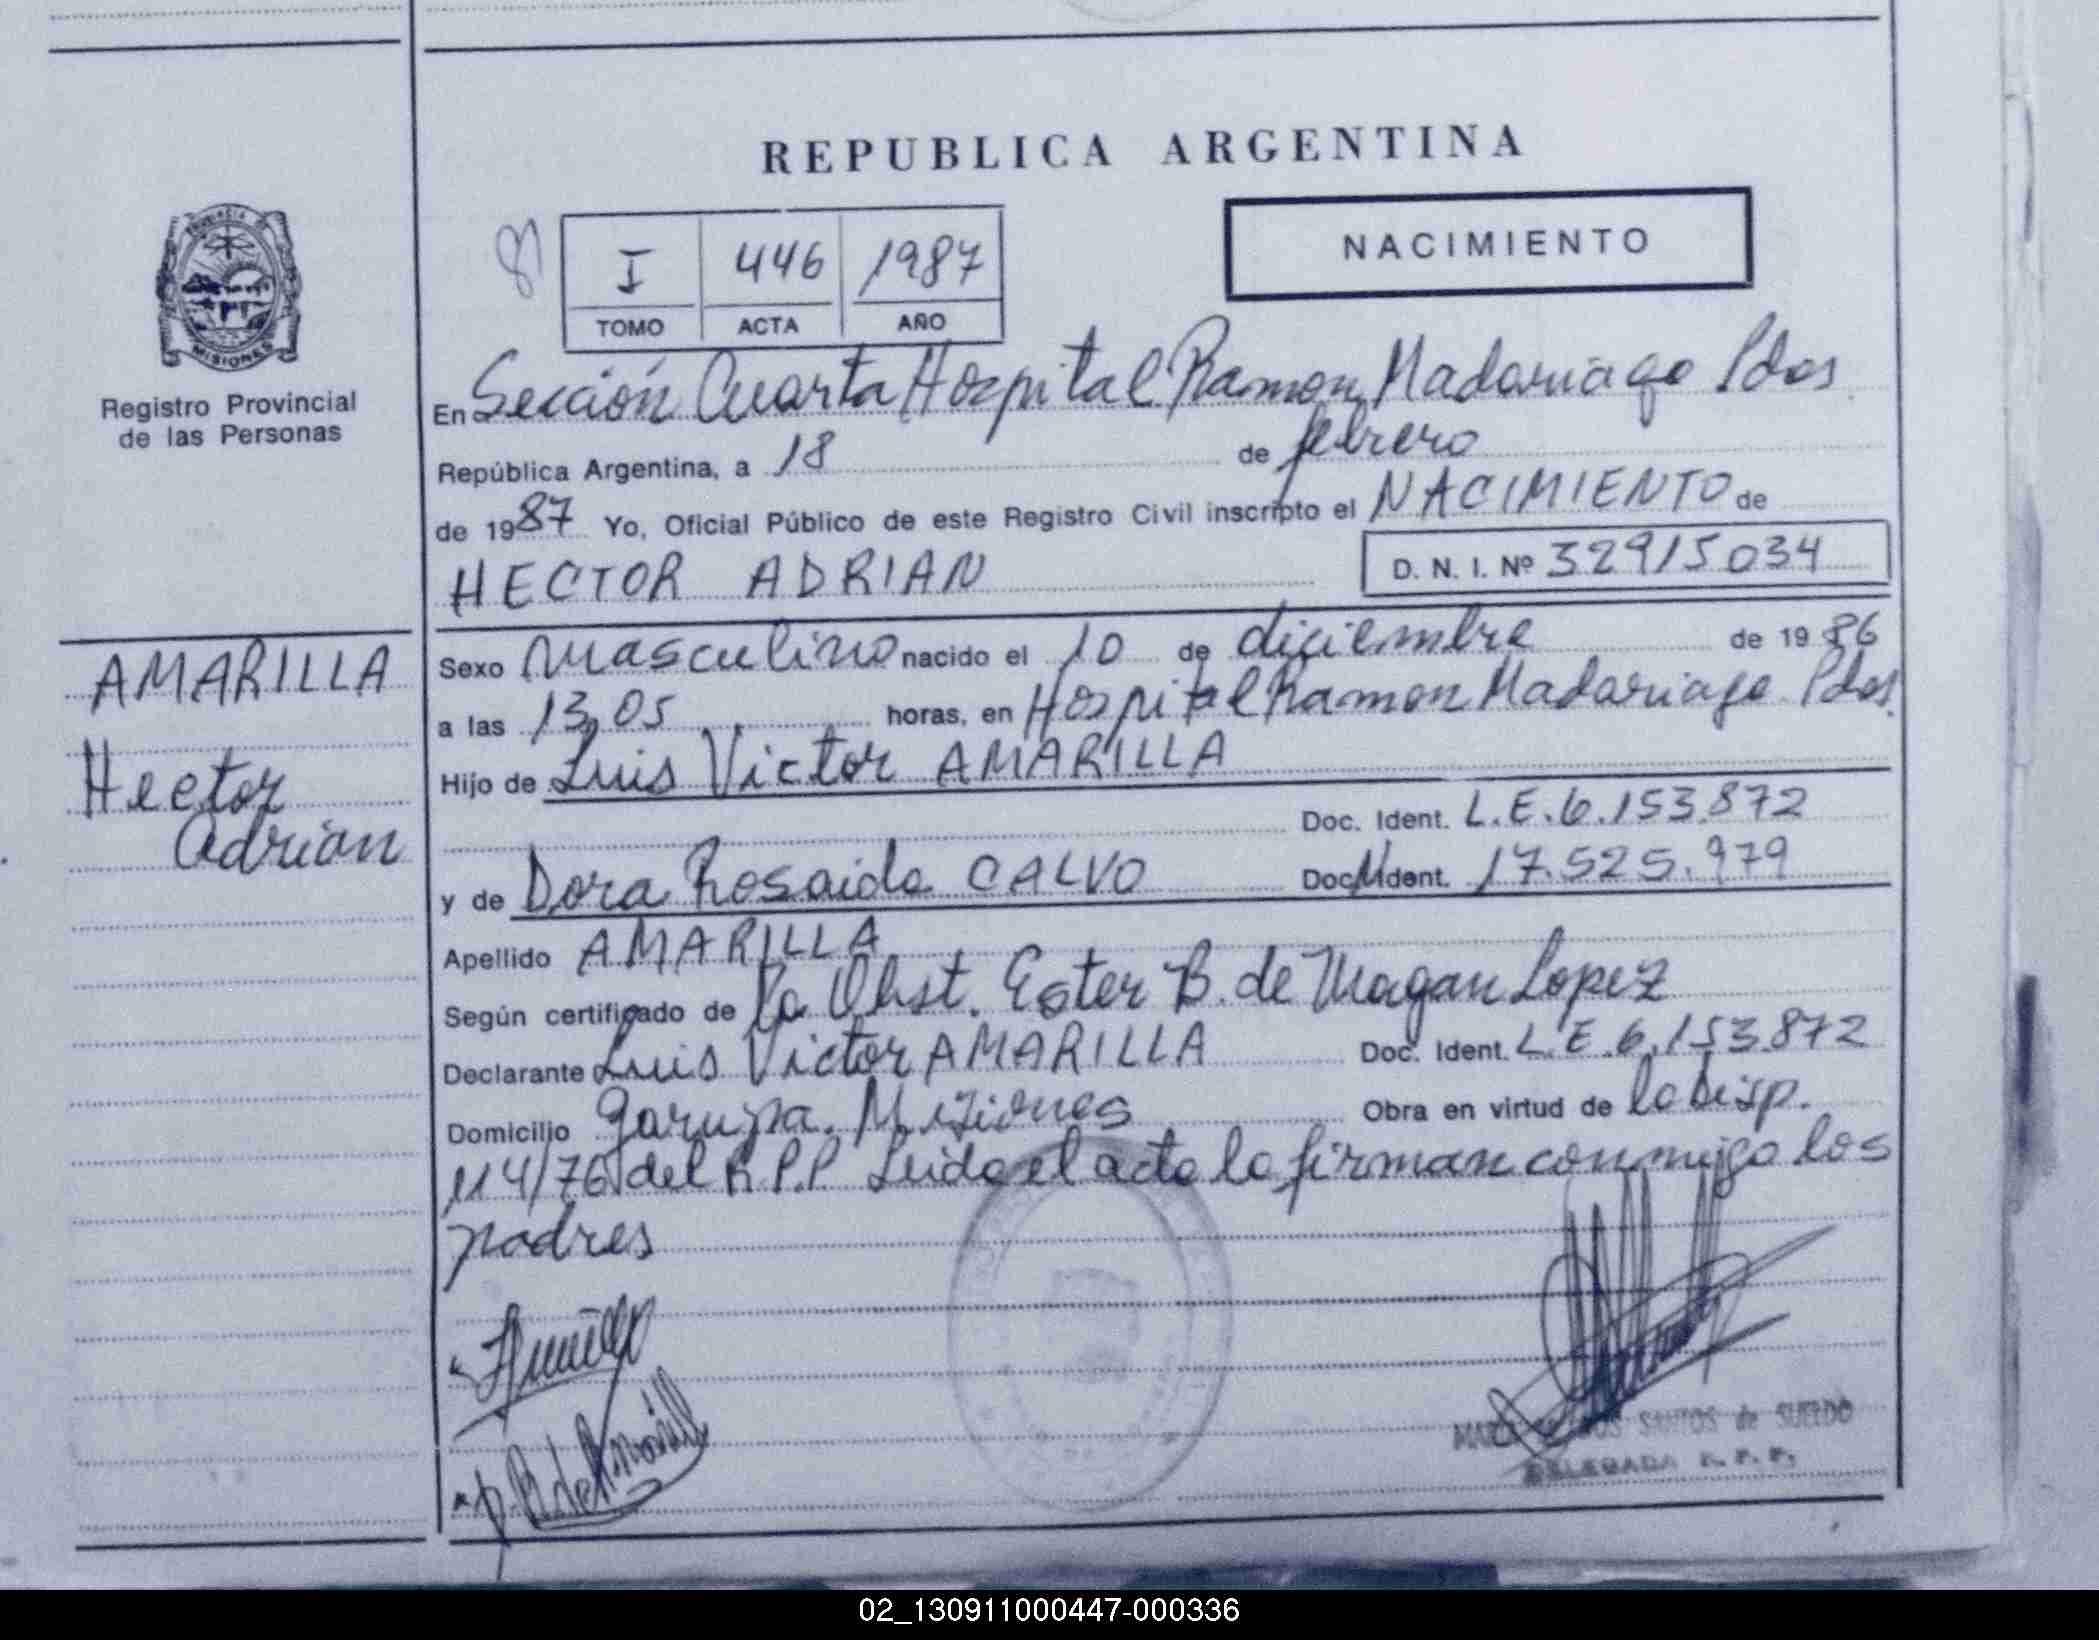 REPUBLICA ARGENTINA
NACIMIENTO
I 446 1987
TOMO ACTA AÑO
MISIONES
Registro Provincial
de las Personas
AMARILLA
Hector
Adrian
En Sección Cuarta Hospital Ramon Madariaga Pdas
República Argentina, a 18 de febrero
de 1987 Yo, Oficial Público de este Registro Civil inscripto el NACIMIENTO de
HECTOR ADRIAN D. N. I. Nº 32915034
Sexo Masculino nacido el 10 de diciembre de 1986
a las 13,05 horas, en Hospital Ramon Madariaga Pdas.
Hijo de Luis Victor AMARILLA
Doc. Ident. L.E.6.153.872
y de Dora Rosaida CALVO Doc. Ident. 17.525.979
Apellido AMARILLA
Según certificado de la Obst. Ester B. de Magan Lopez
Declarante Luis Victor AMARILLA Doc. Ident. L.E.6.153.872
Domicilio Garupa. Misiones Obra en virtud de la Disp.
114/76 del R.P.P Leida el acta la firman conmigo los
padres
SANTOS de SUELDO
DELEGADA R. P. P.
02_130911000447-000336